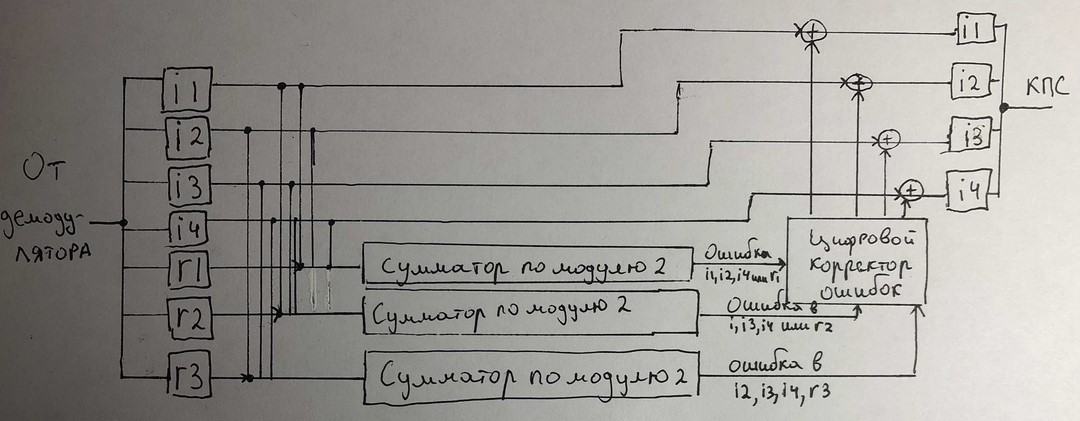 От
демоду-
лятора
i1
i2
i3
i4
r1
r2
r3
Сумматор по модулю 2
Сумматор по модулю 2
Сумматор по модулю 2
Ошибка
i1,i2,i4 или r1
Ошибка в
i,i3,i4 или r2
ошибка в
i2,i3,i4,r3
Цифровой
корректор
ошибок
+
+
+
+
i1
i2
i3
i4
КПС